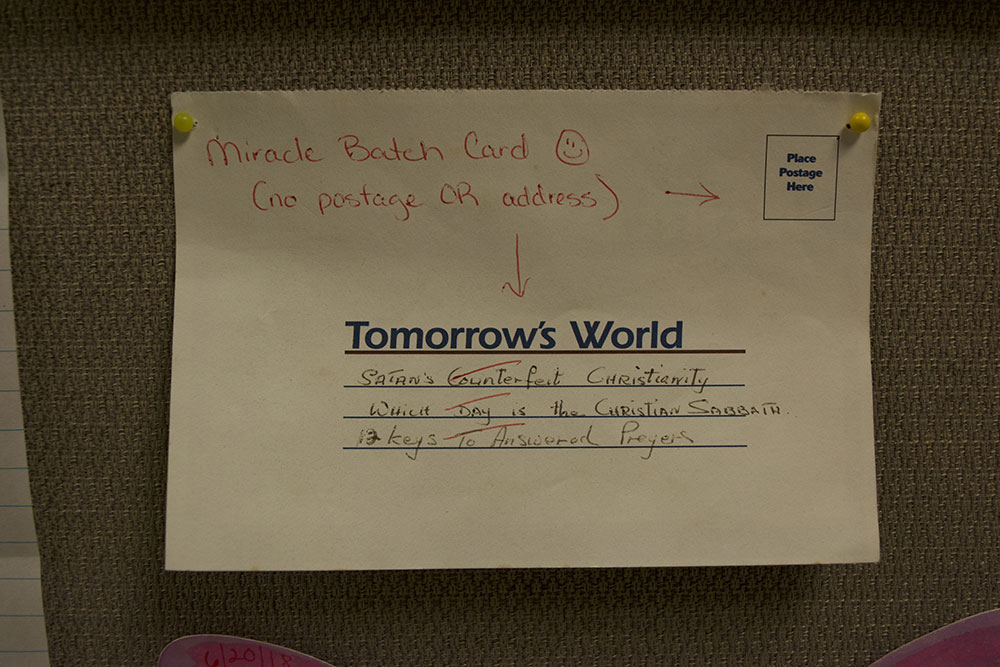 Miracle Batch Card
(no postage OR address)
Place
Postage
Here
Tomorrow's World
SATAN'S Counterfeit CHRistianity
WHICH DAY is the CHRISTIAN SABBATH.
12 keys To Answered Preyers
6/20/18